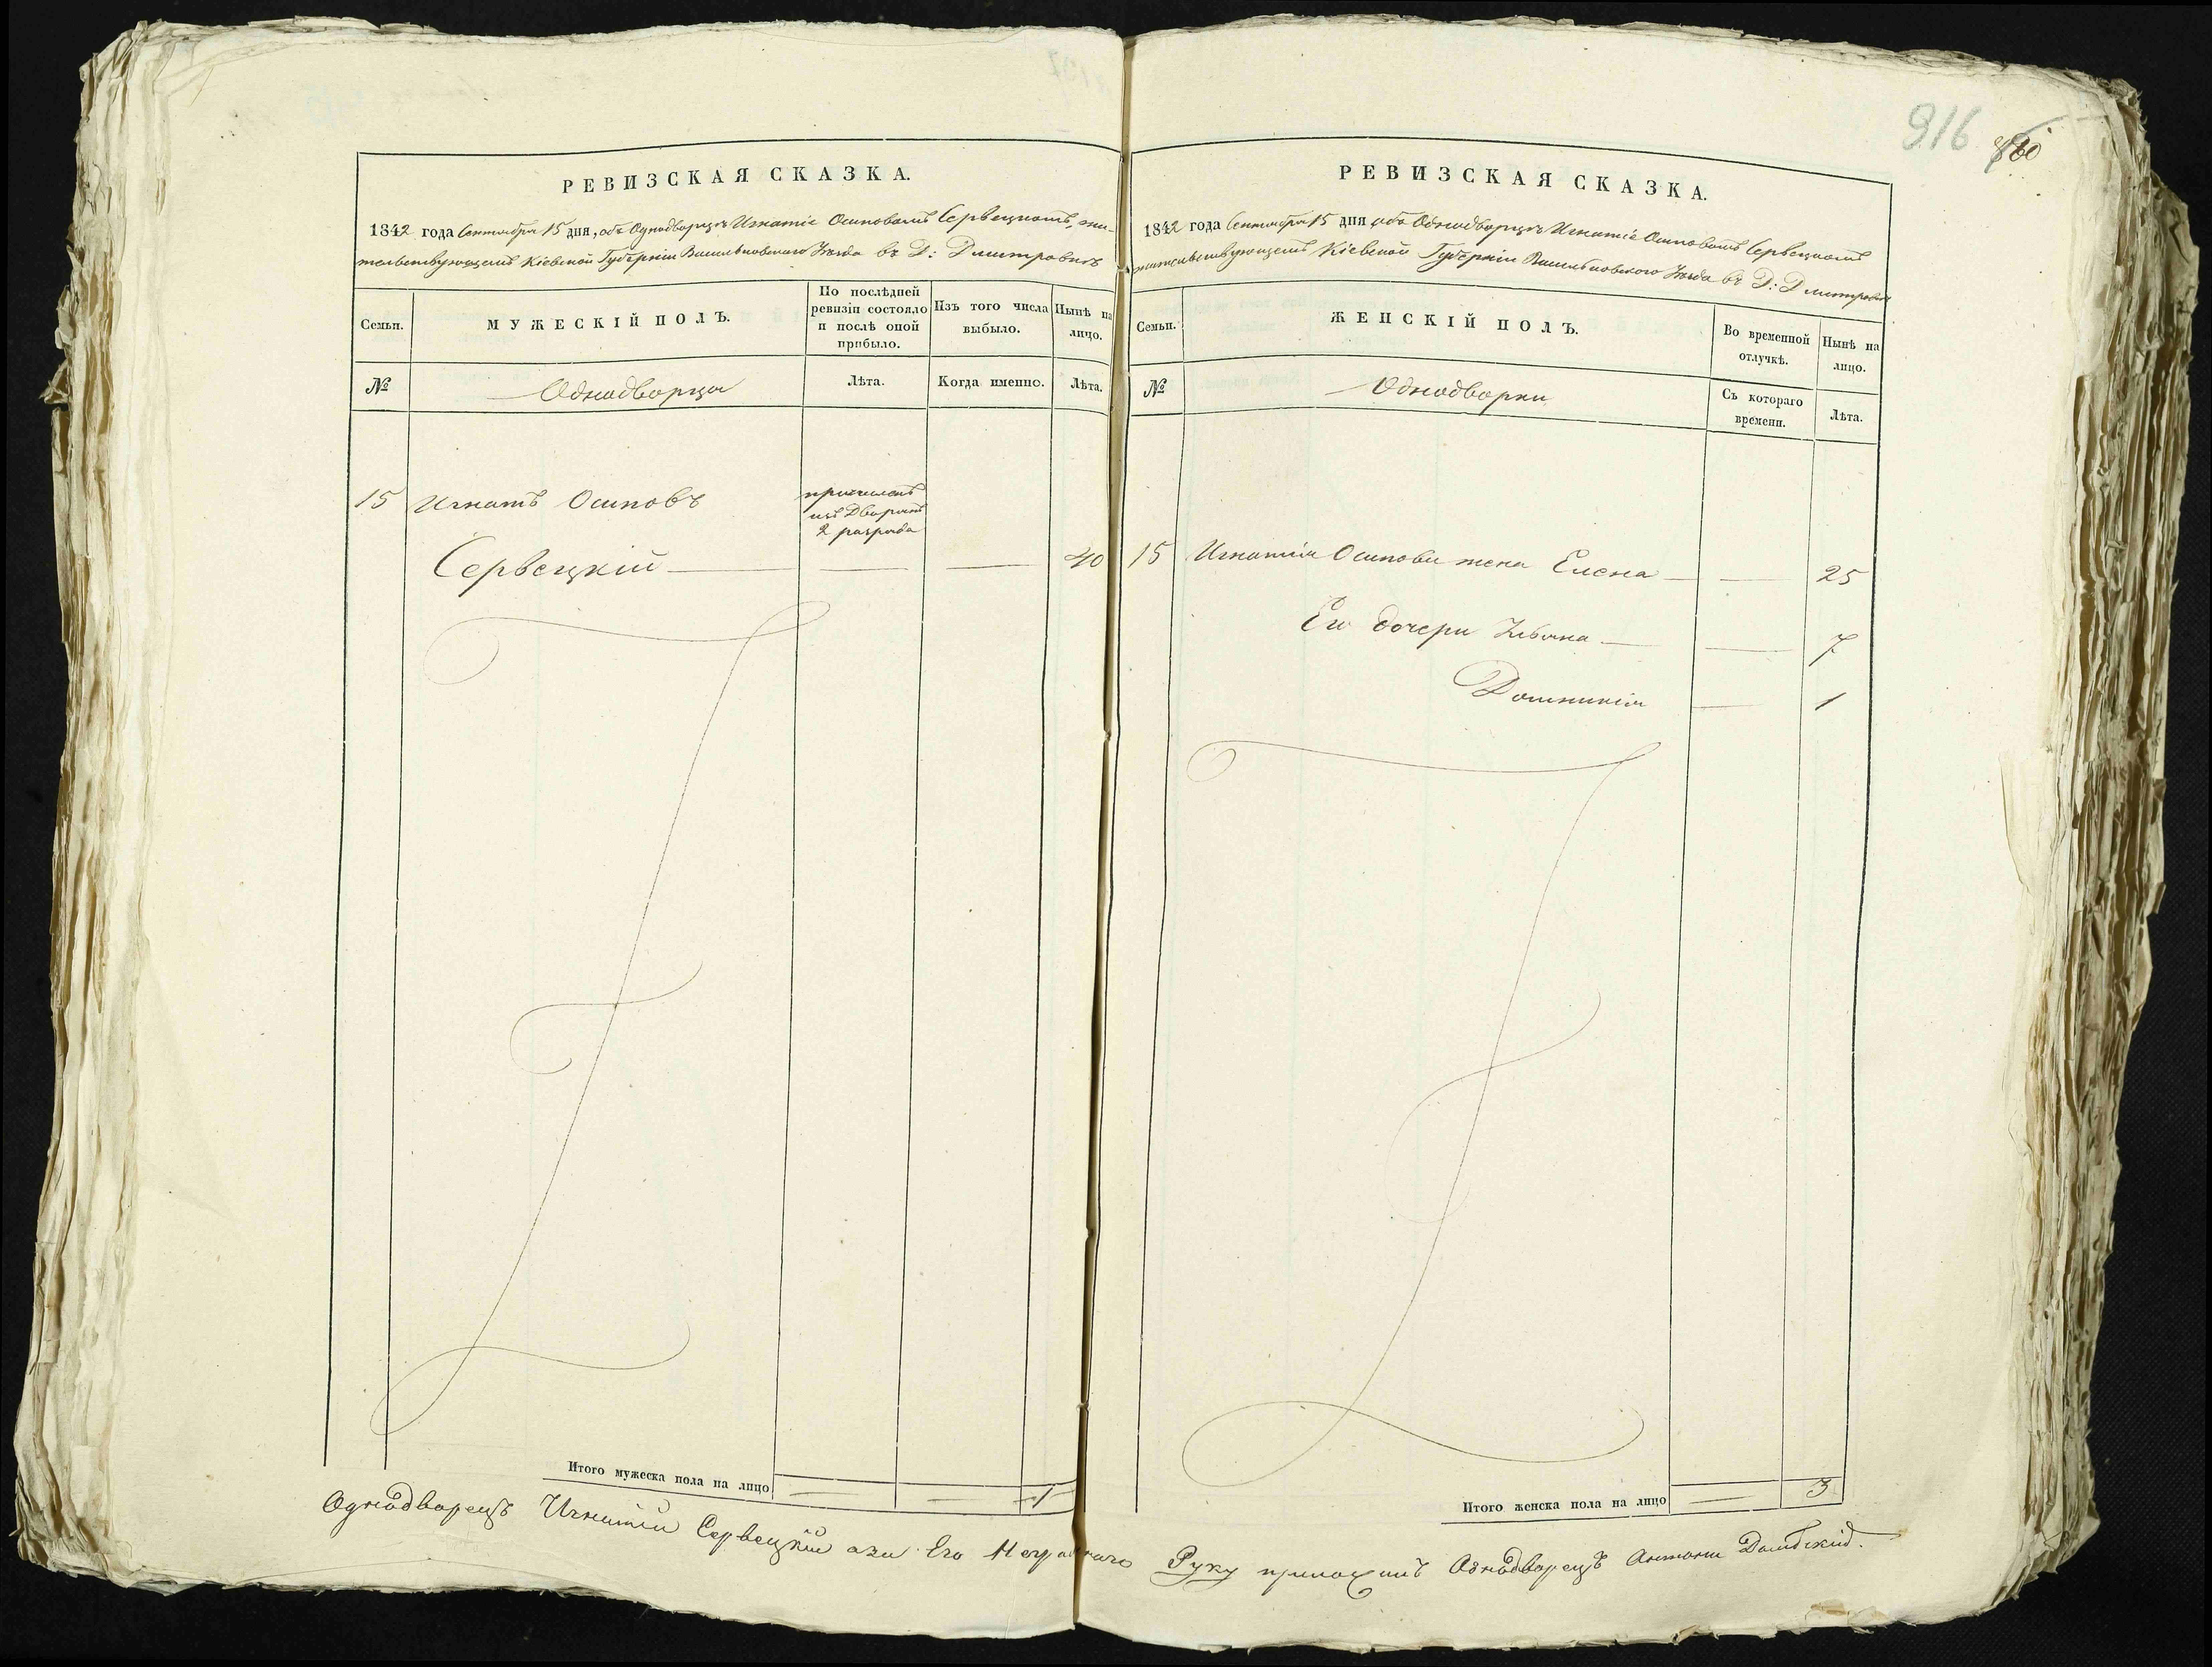 РЕВИЗСКАЯ СКАЗКА.
1842 года Сентября 15 дня, объ Однодворцѣ Игнатіе Осиповомъ Сервецкомъ, жи-
тельствующемъ Кіевской Губерніи Васильковского Уѣзда въ Д: Дмитровкѣ
Семьи.
МУЖЕСКІЙ ПОЛЪ.
По послѣдней ревизіи состояло и послѣ оной прибыло.
Изъ того числа выбыло.
Нынѣ на лицо.
№
Однодворцы
Лѣта.
Когда именно.
Лѣта.
15 Игнатъ Осиповъ
причисленъ
изъ Дворянъ
2 разряда
Сервецкій 40
Итого мужеска пола на лицо 1
Однодворецъ Игнатій Сервецкій а за Его Неграмотного
916 880
РЕВИЗСКАЯ СКАЗКА.
1842 года Сентября 15 дня объ Однодворцѣ Игнатіе Осиповомъ Сервецкомъ
жительствующемъ Кіевской Губерніи Васильковского Уѣзда въ Д: Дмитровкѣ
Семьи.
ЖЕНСКІЙ ПОЛЪ.
Во временной отлучкѣ.
Нынѣ на лицо.
№
Однодворки
Съ котораго времени.
Лѣта.
15 Игнатія Осипова жена Елена 25
Его дочери 7
Домникія 1
Итого женска пола на лицо 3
Руку приложилъ Однодворецъ Антони Домбскій.